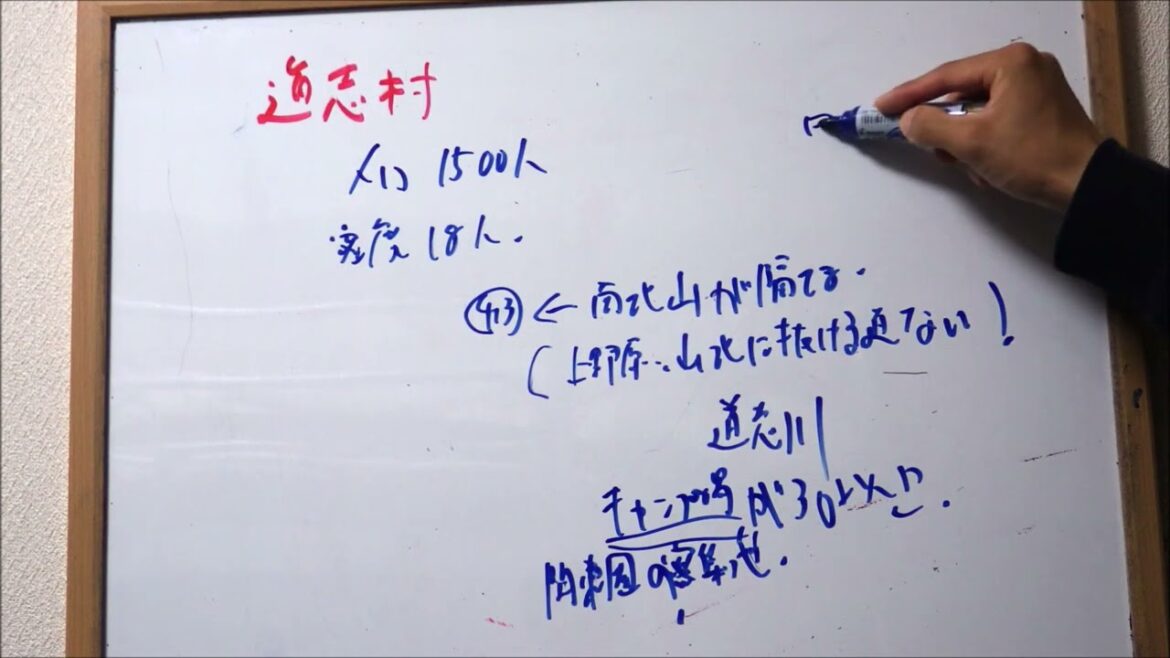 道志村
人口 1500人
密度 18人.
413 ← 南北山が隔てる.
(上野原..山北に抜ける道てない)!
道志川
キャンプ場が30以上.
関東圏の密集地.